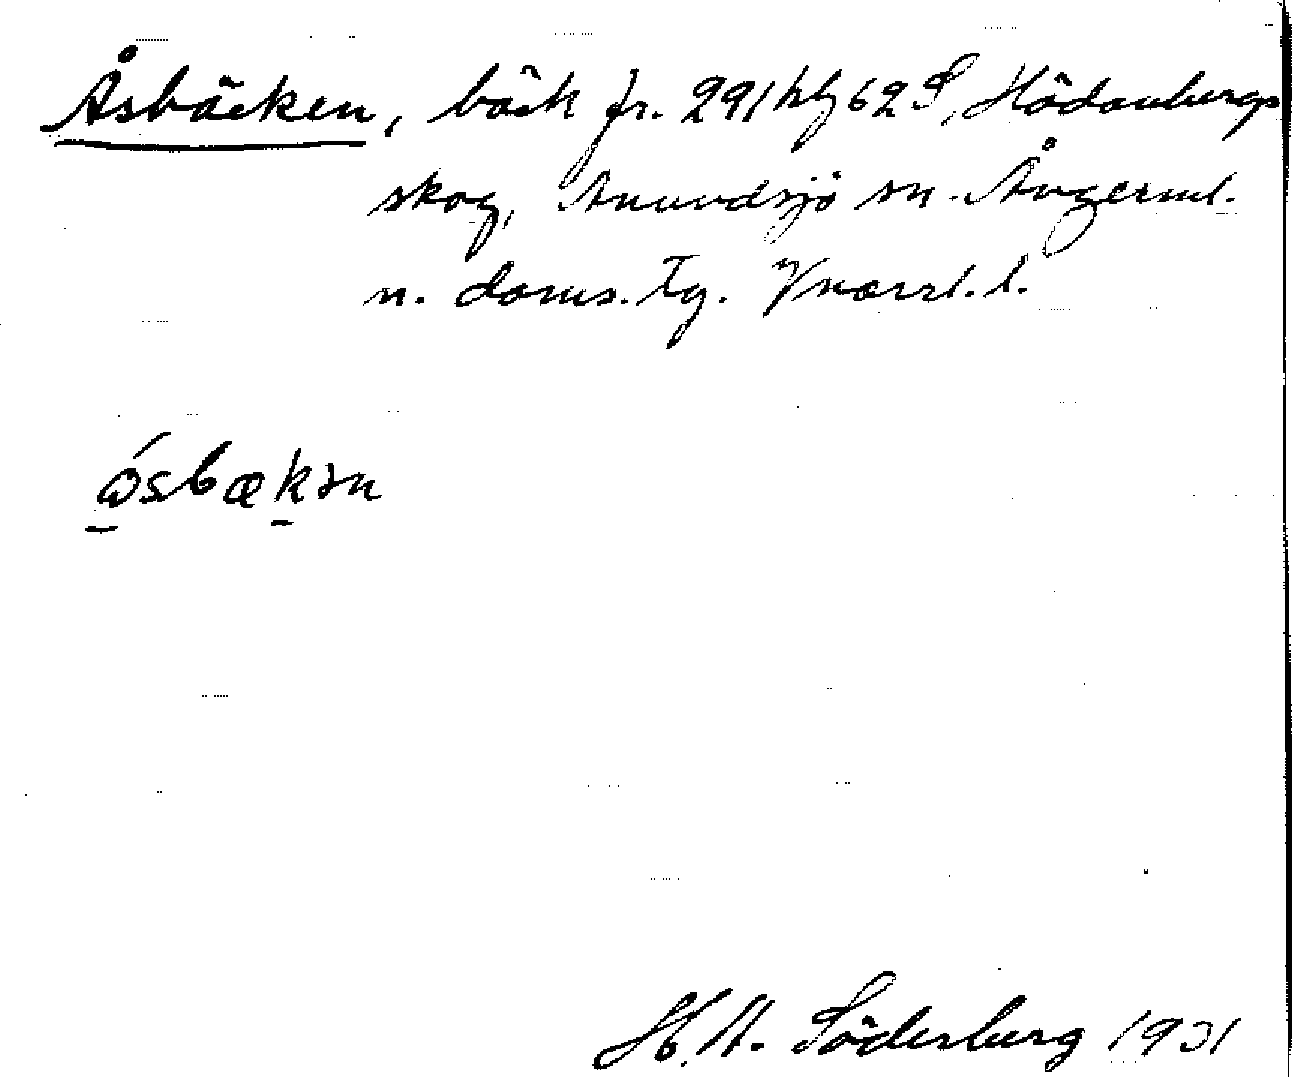 Åsbäcken, bäck fr. 291 hg 62 S, Hädanbergs
skog, Anundsjö sn. Ångerml.
n. doms. Tg. Vnorrl. l.
ǻsbækən
H. A. Söderberg 1931